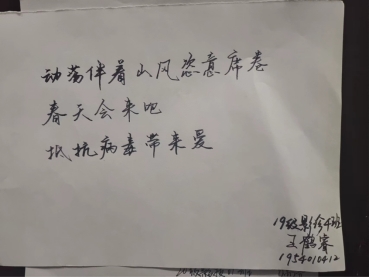 动荡伴着山风恣意席卷
春天会来吧
抵抗病毒带来爱
19级影诊4班
王鹤睿
1954010412